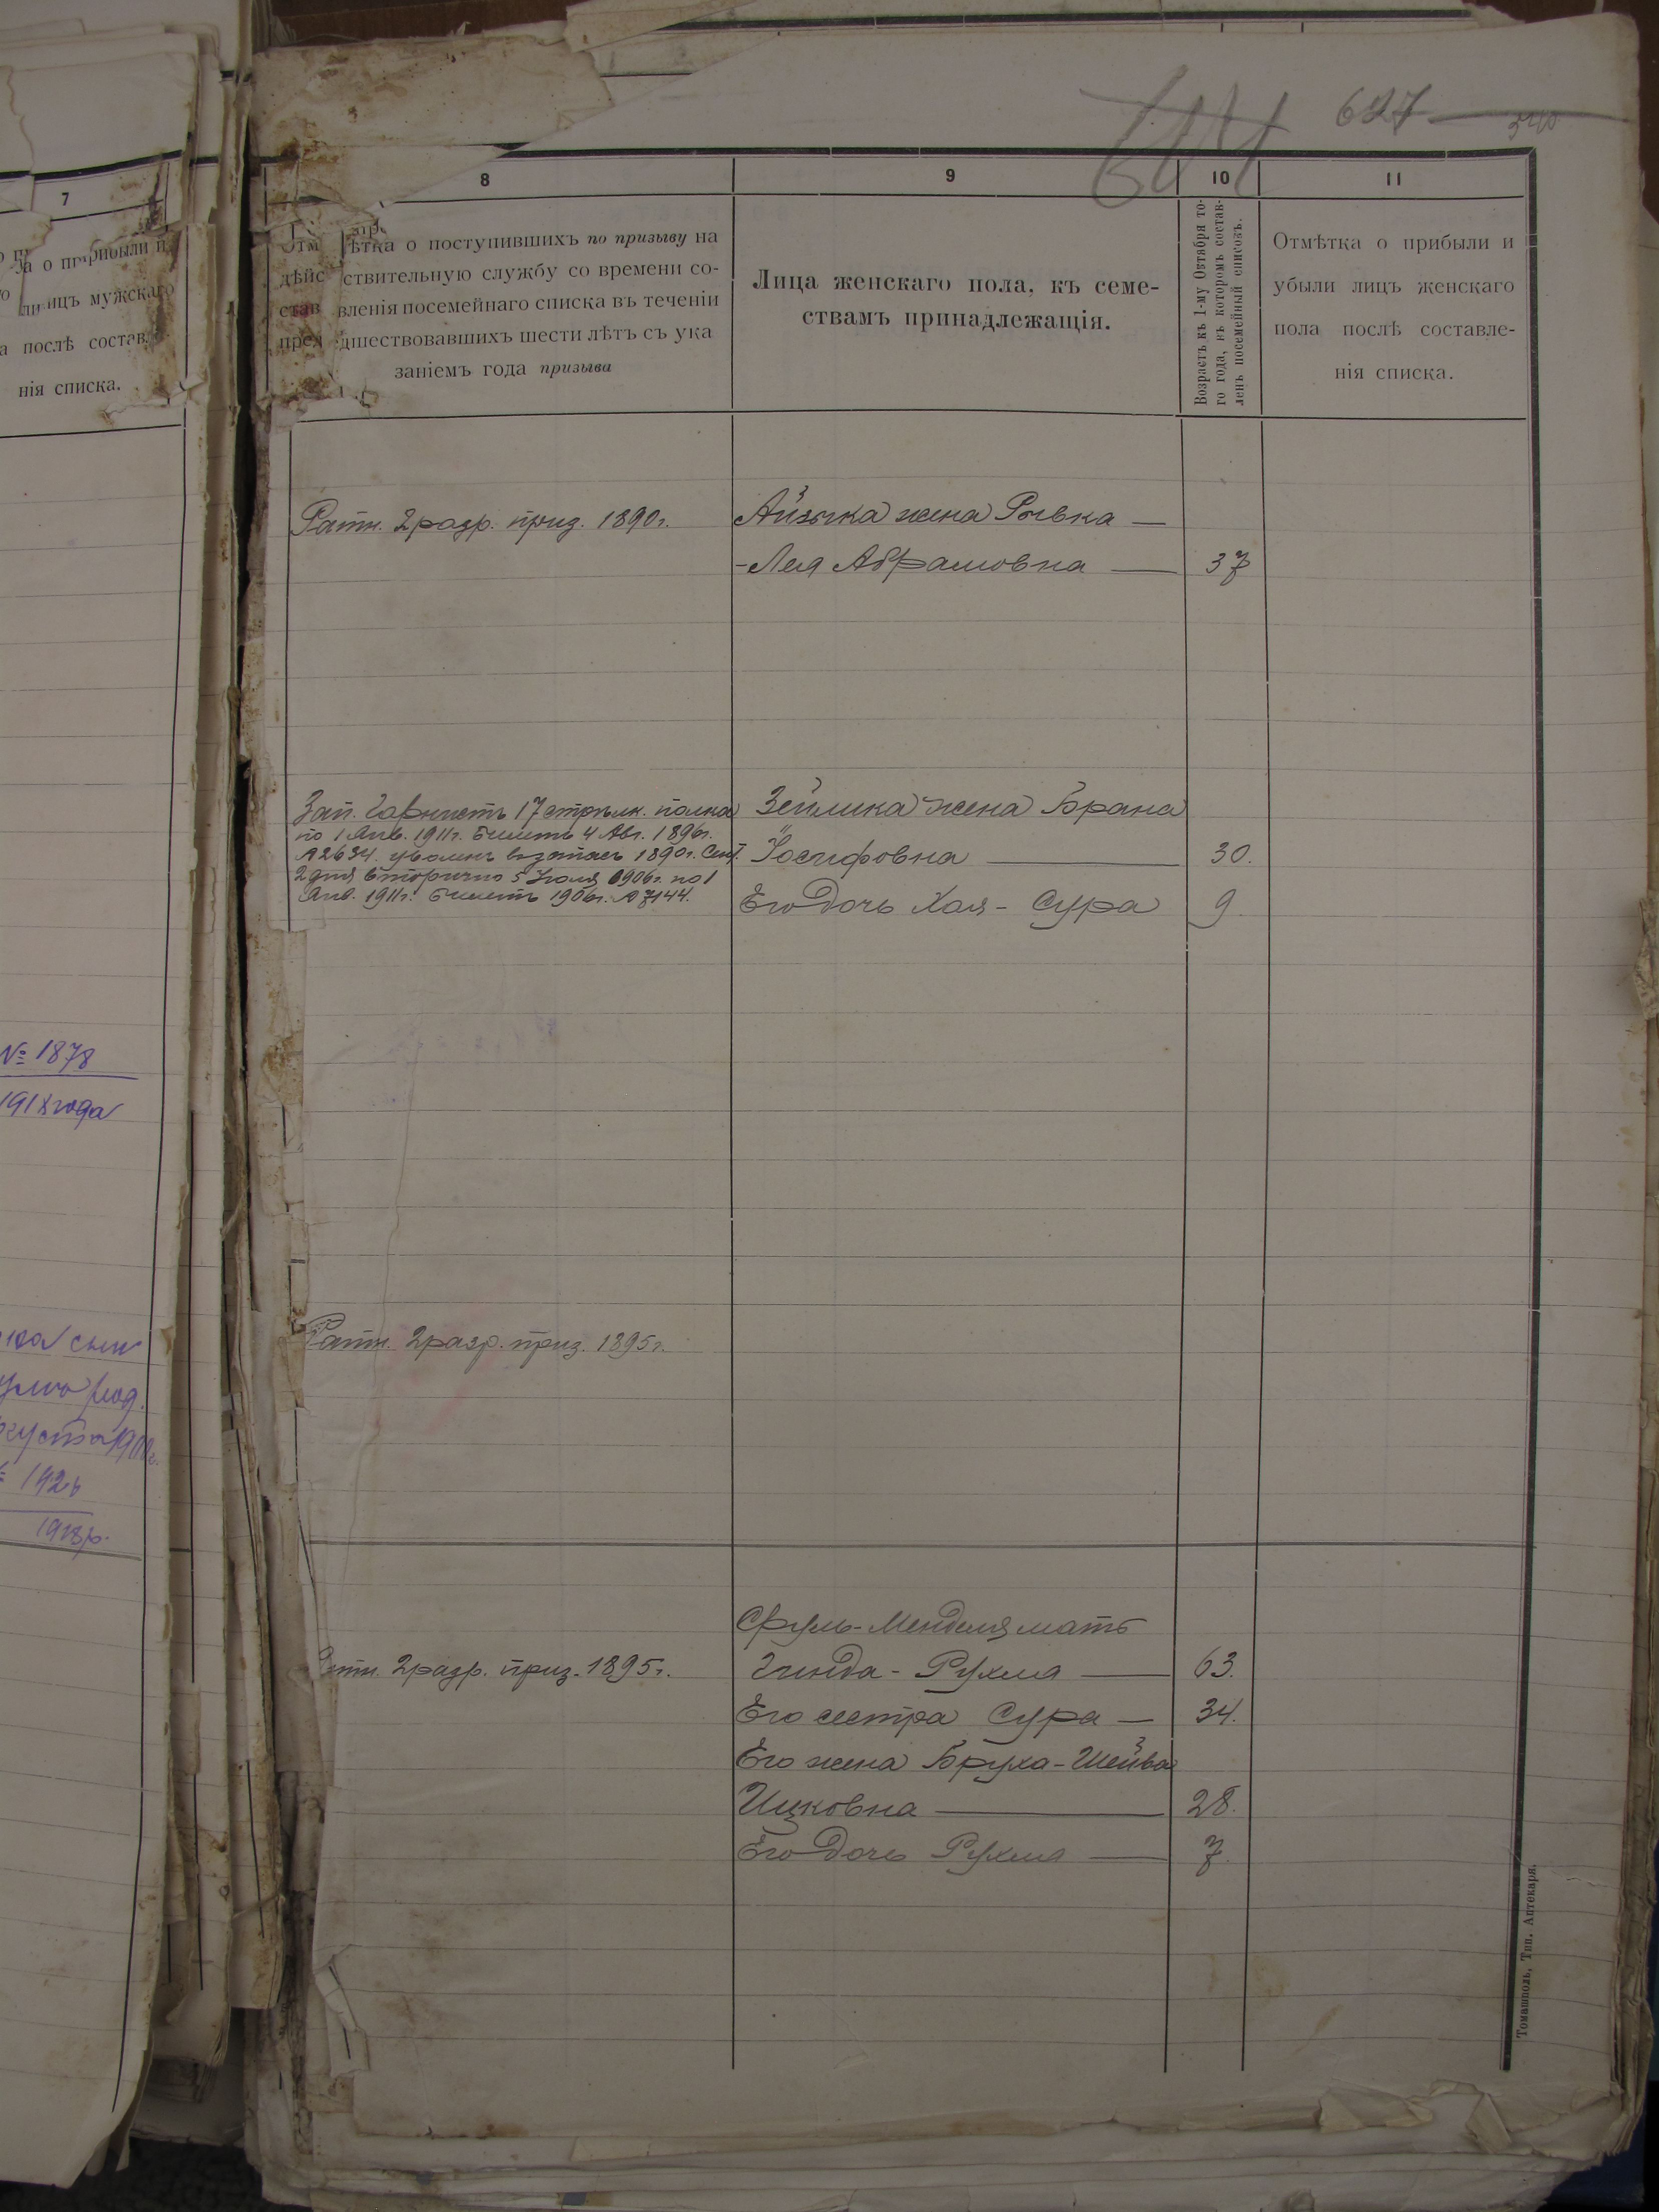 627
7
нія списка.
№ 1878
1426
8
ѣтка о поступившихъ по призыву на
дѣйствительную службу со времени со-
ставленія посемейнаго списка въ теченіи
предшествовавшихъ шести лѣтъ съ ука
заніемъ года призыва
9
Лица женскаго пола, къ семе-
ствамъ принадлежащія.
10
Возрастъ къ 1-му Октября то-
го года, въ которомъ состав-
ленъ посемейный списокъ.
11
Отмѣтка о прибыли и
убыли лицъ женскаго
пола послѣ составле-
нія списка.
Ратн. 2 разр. приз. 1890 г.
Айзыка жена Рывка —
-Лея Абрамовна — 37
Зап. Горнистъ 17 стрѣлк. полка
по 1 Янв. 1911 г. билетъ 4 Авг. 1896 г.
№ 2634. уволенъ въ запасъ 1890 г. Сент.
2 дня вторично 5 Іюля 1906 г. по 1
Янв. 1911 г. билетъ 1906 г. № 7144.
Зейлика жена Брана
Іосифовна — 30.
Его дочь Хая - Сура 9.
Ратн. 2 разр. приз. 1895 г.
Ратн. 2 разр. приз. 1895 г.
Сруль-Менделя мать
Гинда - Рухля — 63.
Его сестра Сура — 34.
Его жена Бруха-Шейва
Ицковна — 28.
Его дочь Рухля — 7.
Томашполь, Тип. Аптекаря.